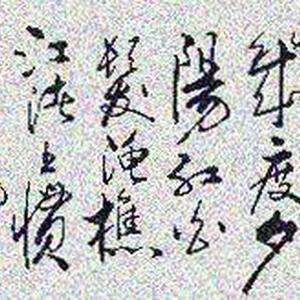 幾度夕
陽紅白
髮漁樵
江渚上慣